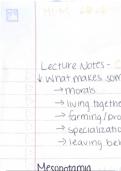 Lecture Notes -
↓ What makes som
→ morals
→ living togethe
→ farming/pro
→ specializatio
→ leaving beh
Mesopotamia